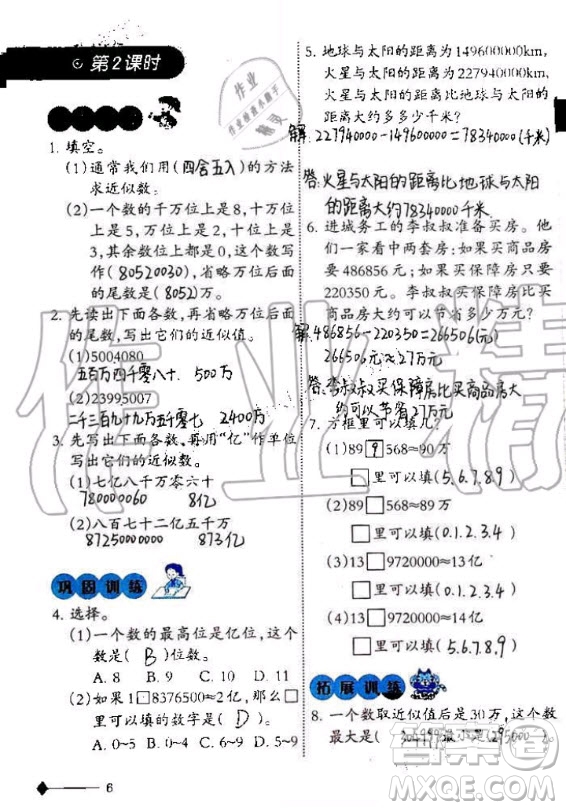 第2课时
1. 填空。
(1)通常我们用(四舍五入)的方法
求近似数。
(2)一个数的千万位上是8,十万位
上是5,万位上是2,十位上是
3,其余数位上都是0,这个数写
作(80520030),省略万位后面
的尾数是(8052)万。
2. 先读出下面各数,再省略万位后面
的尾数,写出它们的近似值。
(1)5004080
五百万四千零八十. 500万
(2)23995007
二千三百九十九万五千零七 2400万
3. 先写出下面各数,再用“亿”作单位
写出它们的近似数。
(1)七亿八千万零六十
780000060 8亿
(2)八百七十二亿五千万
87250000000 873亿
巩固训练
4. 选择。
(1)一个数的最高位是亿位,这个
数是(B)位数。
A. 8 B. 9 C. 10 D. 11
(2)如果1□8376500≈2亿,那么□
里可以填的数字是(D)。
A. 0~5 B. 0~4 C. 4~9 D. 5~9
6
5. 地球与太阳的距离为149600000km,
火星与太阳的距离为227940000km,
火星与太阳的距离比地球与太阳的
距离大约多多少千米?
解:227940000-149600000=78340000(千米)
答:火星与太阳的距离比地球与太阳
的距离大约78340000千米.
6. 进城务工的李叔叔准备买房。他
们一家看中两套房:如果买商品房
要486856元;如果买保障房只要
220350元。李叔叔买保障房比买
商品房大约可以节省多少万元?
解:486856-220350=266506(元)
266506元≈27万元
答:李叔叔买保障房比买商品房大
约可以节省27万元.
7. 方框里可以填几?
(1)89 9 568≈90万
□里可以填(5.6.7.8.9)
(2)89□568≈89万
□里可以填(0.1.2.3.4)
(3)13□9720000≈13亿
□里可以填(0.1.2.3.4)
(4)13□9720000≈14亿
□里可以填(5.6.7.8.9)
拓展训练
8. 一个数取近似值后是30万,这个数
最大是(304999)最小是(295000)
作业精
答案圈
MXQE.COM